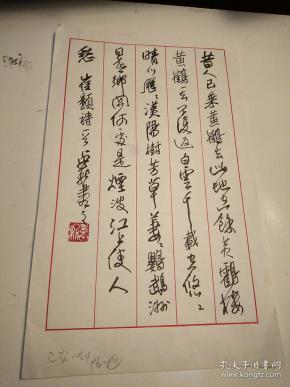 昔人已乘黄鹤去此地空余黄鹤楼
黄鹤一去不复返白云千载空悠々
晴川历々汉阳树芳草萋々鹦鹉洲
日暮乡关何处是烟波江上使人
愁 崔颢诗一首
孔夫子旧书网